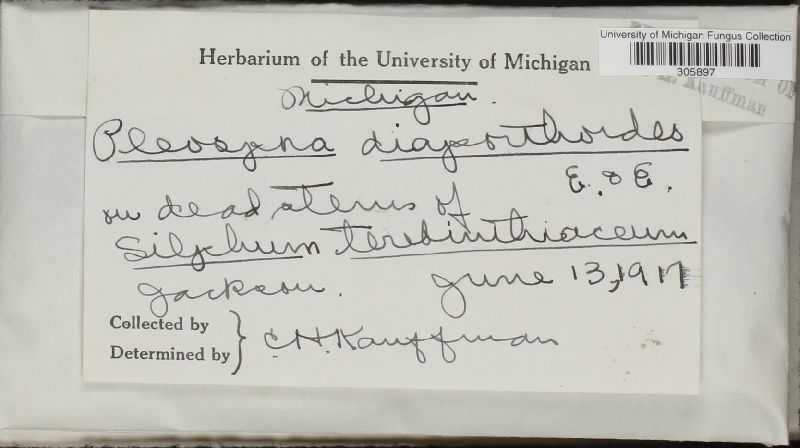 University of Michigan Fungus Collection
305897
Kauffman
Herbarium of the University of Michigan
Michigan.
Pleospora diaporthoides
E. & E.
on dead stems of
Silphium terebinthiaceum
Jackson. June 13, 1917
Collected by
Determined by } C.H. Kauffman